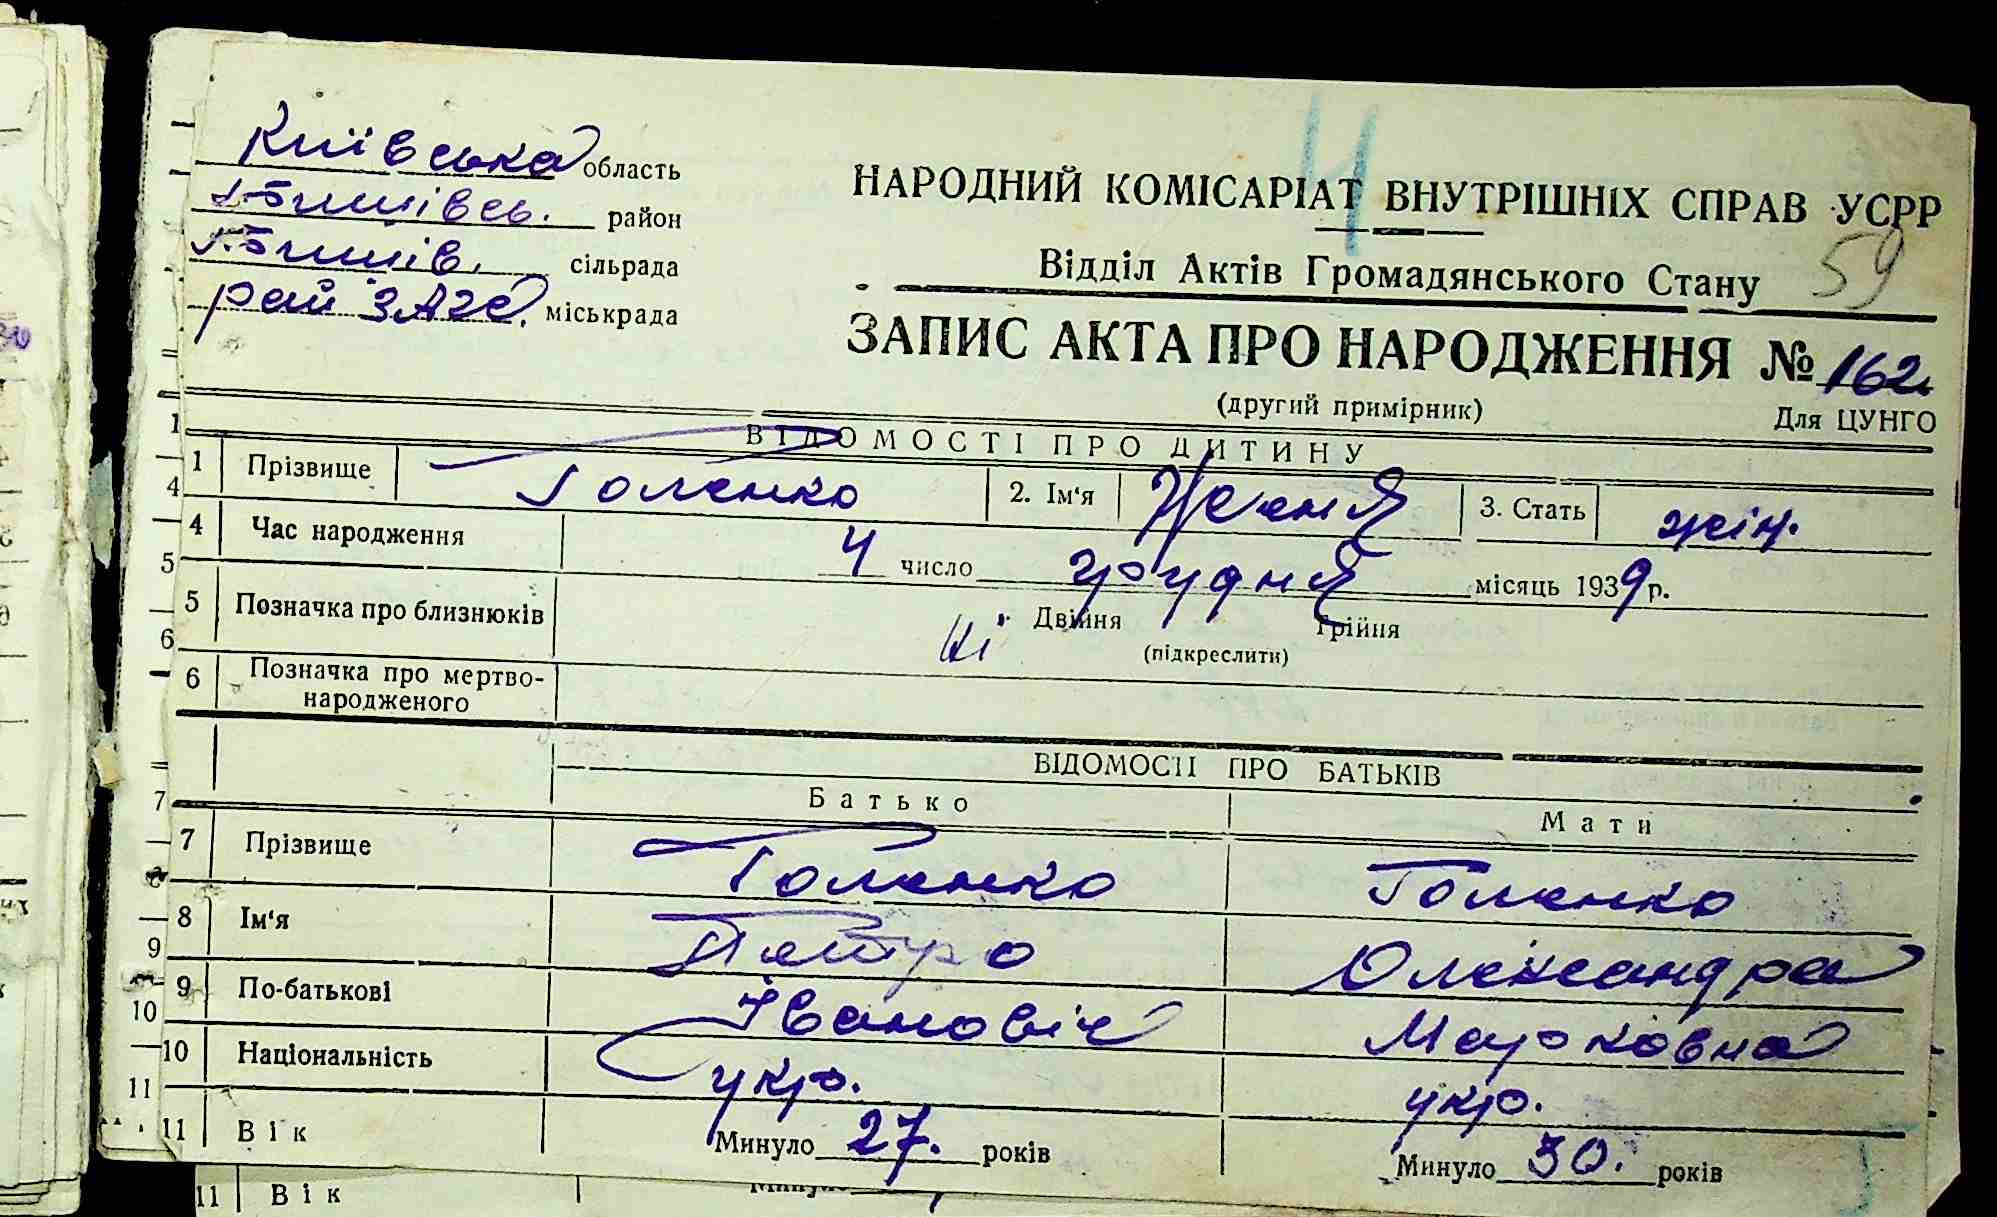 Київська область
Бишівсь. район
Бишів. сільрада
рай ЗАГС. міськрада
НАРОДНИЙ КОМІСАРІАТ ВНУТРІШНІХ СПРАВ УСРР
59
Відділ Актів Громадянського Стану
ЗАПИС АКТА ПРО НАРОДЖЕННЯ № 162
(другий примірник)
Для ЦУНГО
ВІДОМОСТІ ПРО ДИТИНУ
1 Прізвище Голенко 2. Ім'я Жєня 3. Стать жін.
4 Час народження 4 число грудня місяць 1939 р.
5 Позначка про близнюків Ні Двійня Трійня
(підкреслити)
6 Позначка про мертво-
народженого
ВІДОМОСТІ ПРО БАТЬКІВ
Батько Мати
7 Прізвище Голенко Голенко
8 Ім'я Петро Олександра
9 По-батькові Івановіч Марковна
10 Національність укр. укр.
11 Вік Минуло 27. років Минуло 30. років
11 Вік